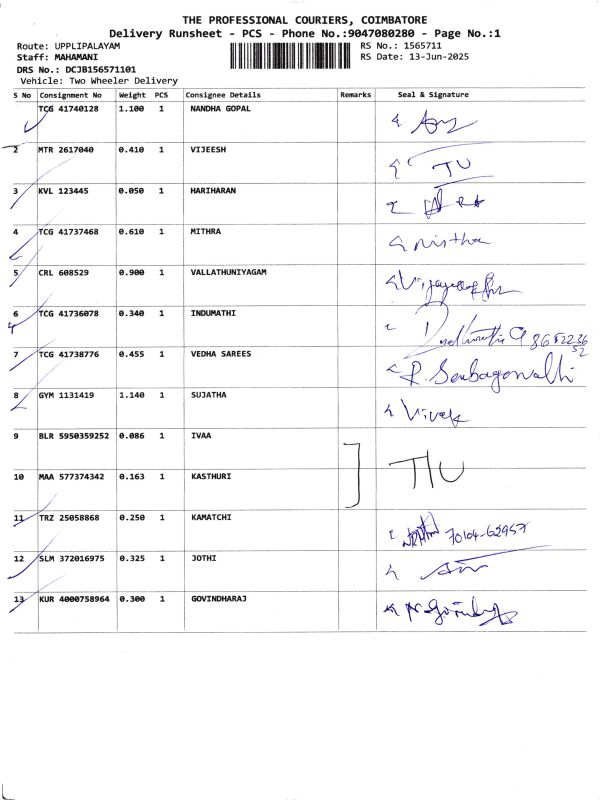 THE PROFESSIONAL COURIERS, COIMBATORE
Delivery Runsheet - PCS - Phone No.:9047080280 - Page No.:1
Route: UPPLIPALAYAM
Staff: MAHAMANI
RS No.: 1565711
RS Date: 13-Jun-2025
DRS No.: DCJB156571101
Vehicle: Two Wheeler Delivery
S No Consignment No Weight PCS Consignee Details Remarks Seal & Signature
TCG 41740128 1.100 1 NANDHA GOPAL
2 MTR 2617040 0.410 1 VIJEESH TU
3 KVL 123445 0.050 1 HARIHARAN
4 TCG 41737468 0.610 1 MITHRA Mithra
5 CRL 608529 0.900 1 VALLATHUNIYAGAM
6 TCG 41736078 0.340 1 INDUMATHI
7 TCG 41738776 0.455 1 VEDHA SAREES
8 GYM 1131419 1.140 1 SUJATHA Vivek
9 BLR 5950359252 0.086 1 IVAA
T/U
10 MAA 577374342 0.163 1 KASTHURI
11 TRZ 25058868 0.250 1 KAMATCHI 70104-62957
12 SLM 372016975 0.325 1 JOTHI
13 KUR 4000758964 0.300 1 GOVINDHARAJ